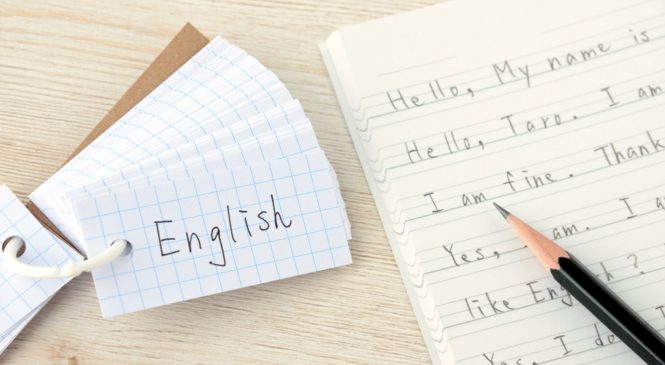 English
Hello, My name is
Hello, Taro. I am
I am fine. Thank
Yes, am. I
like English?
Yes, I do.